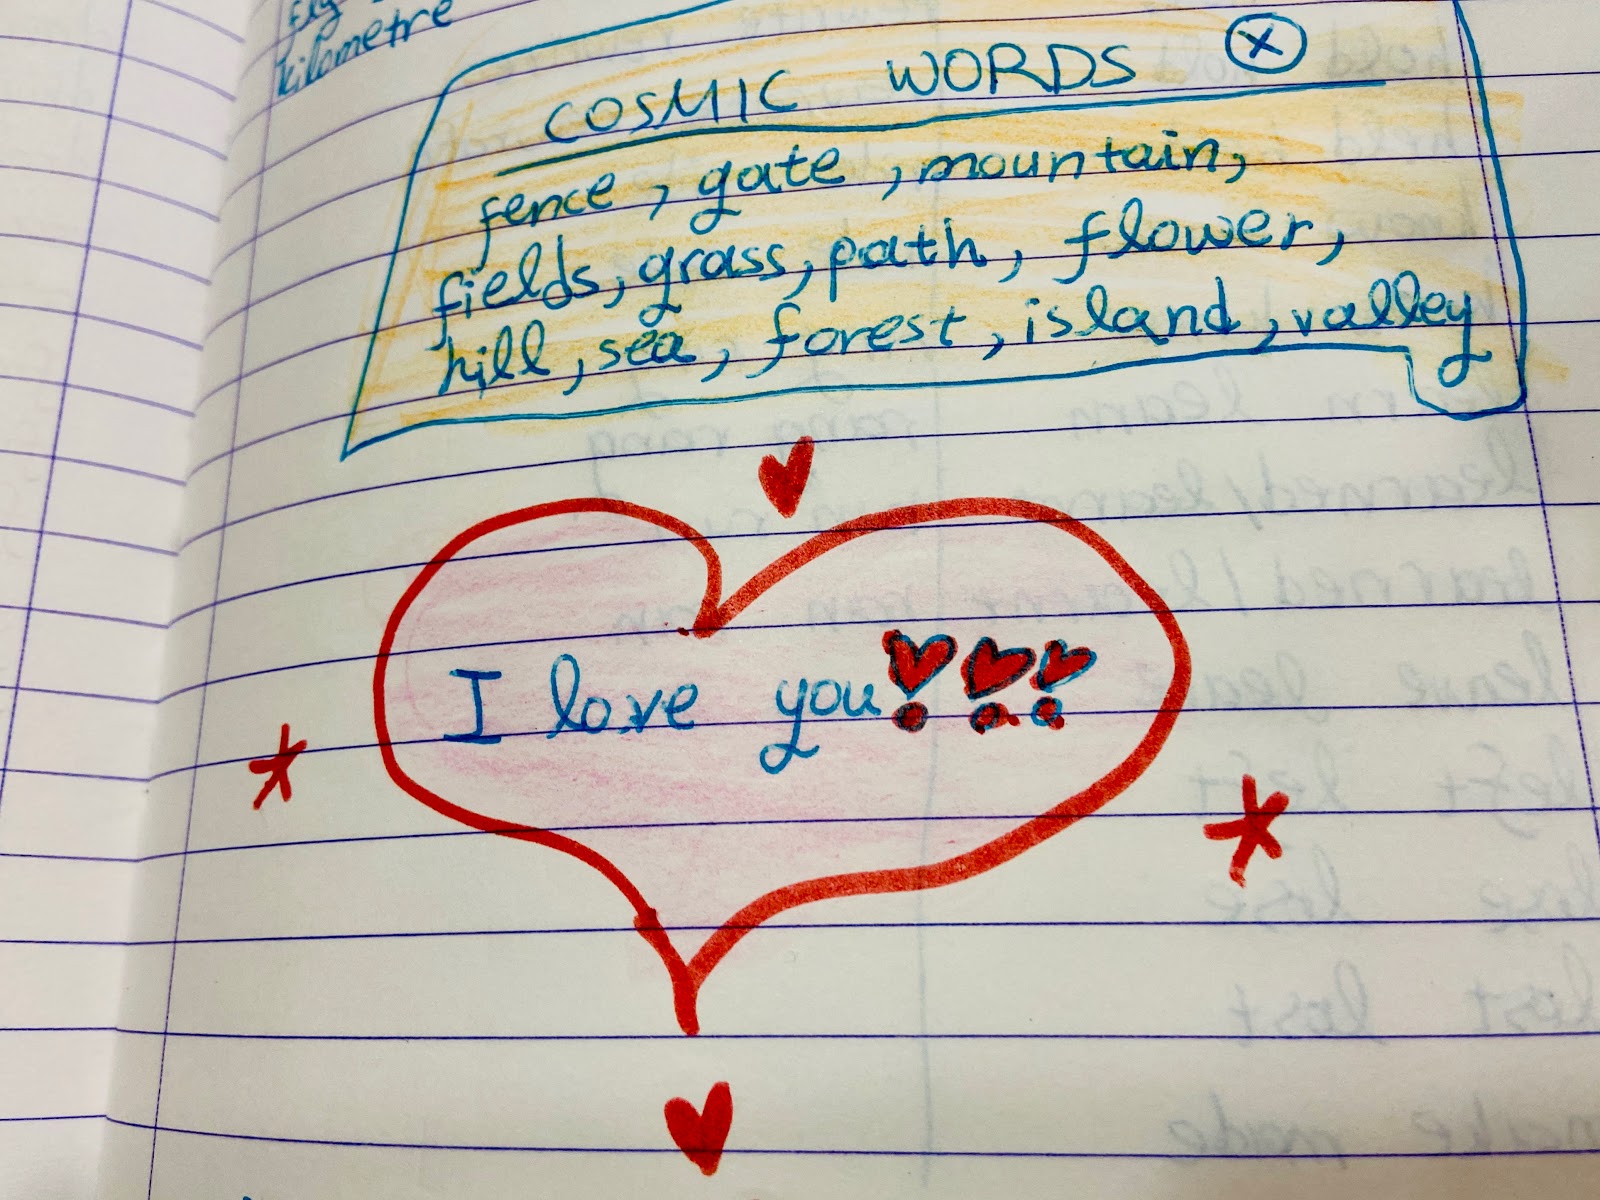 kilometre
COSMIC WORDS X
fence, gate, mountain,
fields, grass, path, flower,
hill, sea, forest, island, valley
I love you!!!